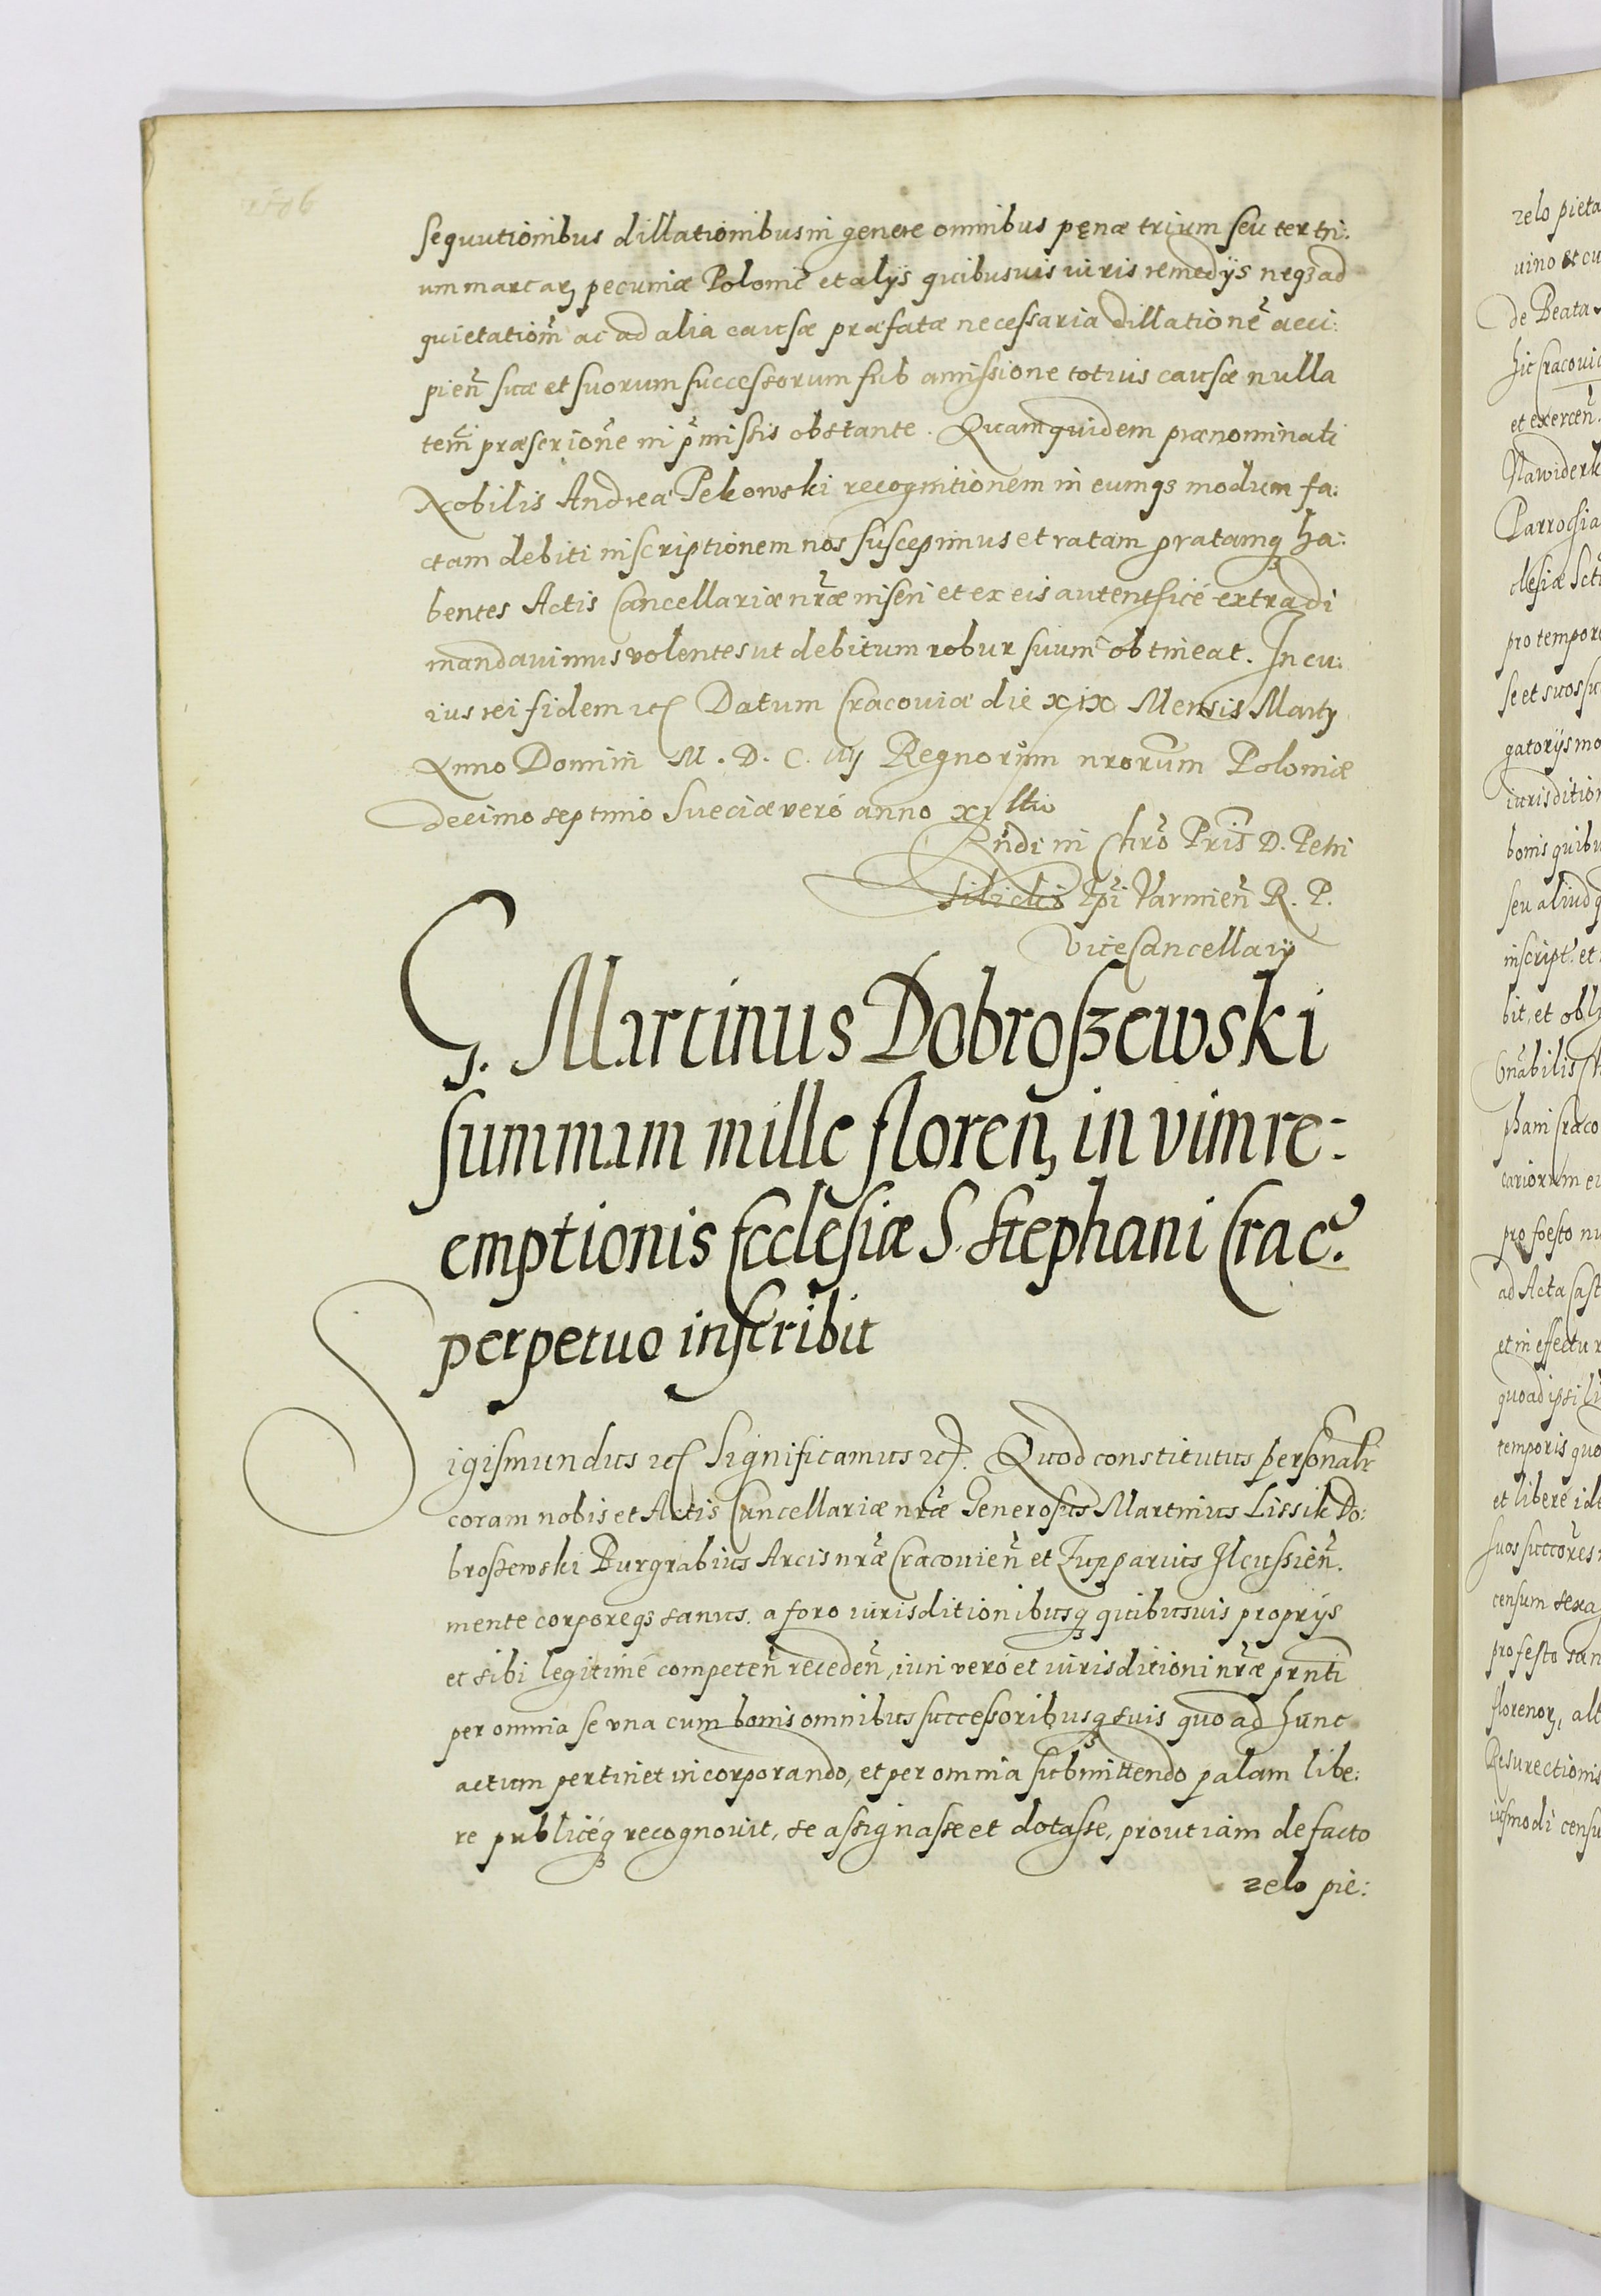 sequutionibus dillationibus in genere omnibus penæ trium seu ter tri:
um marcarꝝ pecuniæ Polonic̃ et alijs quibusuis iuris remedijs neqꝫ ad
quietationẽ ac ad alia causæ præfatæ necessaria dillationẽ acci:
pien̄ suæ et suorum successorum sub amissione totius causæ nulla
præscrione in p̃missis obstante. Quamquidem prænominati
Nobilis Andreæ Pekowski recognitionem in eumqꝫ modum fa:
ctam debiti inscriptionem nos suscepimus et ratam gratamqꝫ ha:
bentes Actis Cancellariæ nr̃æ inseri et ex eis autenthicé extradi
mandauimus volentes ut debitum robur suum obtineat. In cu:
ius rei fidem ꝛcꝭ Datum Cracouiæ die XIX Mensis Martij
Anno Domini M. D. C. iiij Regnorum nrorum Poloniæ
decimo septimo Sueciæ veró anno
Rndi in Chrõ Pris D. Petri
Tilicki Epĩ Varmien̄ R. P.
ViceCancellarij
G. Martinus Dobroszewski
summam mille floren̄, in vim re:
emptionis Ecclesiæ S. Stephani Crac̃.
perpetuo inscribit
Sigismundus ꝛcꝭ Significamus ꝛcꝭ. Quod constitutus personalr
coram nobis et Actis Cancellariæ nr̃æ Generosus Martinus Lissik Do:
broszewski Burgrabius Arcis nr̃æ Cracouien̄ et Zupparius Ilcussien̄.
mente corporeqꝫ sanus. a foro iurisditionibusqꝫ quibusuis proprijs
et sibi legitimé competen̄ receden̄, iuri veró et iurisditioni nr̃æ prn̄ti
per omnia se vna cum bonis omnibus successoribusqꝫ suis quo ad hunc
actum pertinet incorporando, et per omnia submittendo palam libe:
re publicéqꝫ recognouit, se assignasse et dotasse, prout iam de facto
zelo pie:
zelo pieta
uino et cu
de Beata
hic Cracoui
et exercen̄
Nawiderk
Parrochia
clesiæ Sct
pro tempore
se et suos su
gatorijs mo
iurisdition
bonis quibu
seu aliud q
inscript. et
bit, et obli
phani Craco
cariorum
pro foesto nu
ad Acta Cast
et in effectu
quoad ipsi
temporis quo
et libere ide
suos succores
censum sexa
pro festo san
florenoꝝ, alt
Resurectionis
iusmodi censu